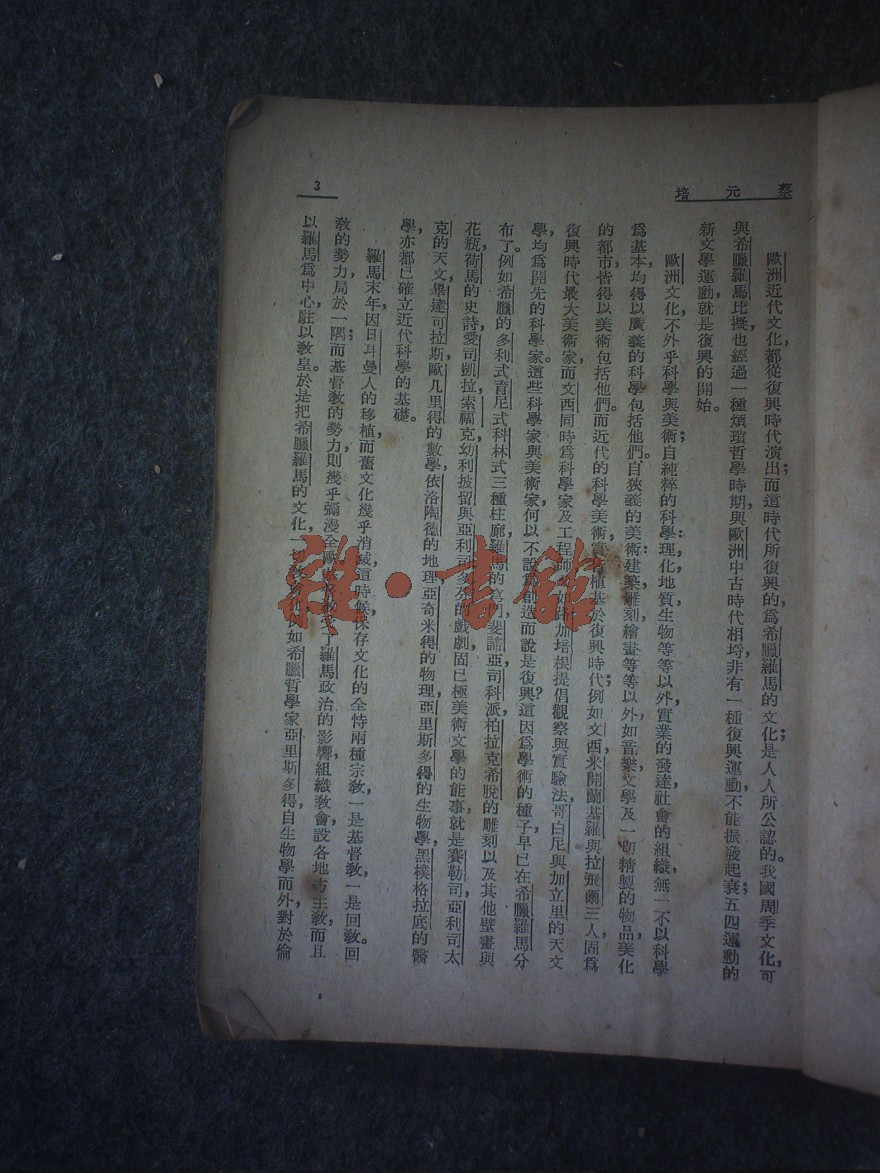 蔡元培
3
歐洲近代文化，都從復興時代演出；而這時代所復興的，爲希臘羅馬的文化；是人人所公認的。我國周季文化，可
與希臘羅馬比擬，也經過一種煩瑣哲學時期，與歐洲中古時代相埒，非有一種復興運動，不能振發起衰；五四運動的
新文學運動，就是復興的開始。
歐洲文化，不外乎科學與美術；自純粹的科學：理化地質生物等等以外，實業的發達，社會的組織，無一不以科學
爲基本，均得以廣義的科學包括他們。自狹義的美術：建築雕刻繪畫等等以外，如音樂文學及一切精製的物品，美化
的都市，皆得以美術包括他們。而近代的科學美術，實皆植基於復興時代；例如文西米開蘭基羅與拉飛爾三人，固爲
復興時代最大美術家，而文西同時爲科學家及工程師；又如路加培根提倡觀察與實驗法，哥白尼與加立里的天文
學，均爲開先的科學家。這些科學家與美術家，何以不說爲創造而說是復興？這因爲學術的種子，早已在希臘羅馬分
布了。例如希臘的多利式育尼式科林式三種柱廊，羅馬的穹門，斐諦亞司科派柏拉克希脫的雕刻以及其他壁畫與
花瓶，荷馬的史詩，愛司凱拉，索福克，幼利披留與亞利司多芬的戲劇，固已極美術文學的能事，就是賽勒司，亞利司太
克的天文，畢達可拉斯，歐几里得的數學，依洛陶德的地理，亞奇米得的物理，亞里斯多得的生物學，黑樸格拉底的醫
學，亦都已確立近代科學的基礎。
羅馬末年，因日耳曼人的移植，而舊文化幾乎消滅，這時候，保存文化的全恃兩種宗教，一是基督教，一是回教。回
教的勢力局於一隅；而基督教的勢力，則幾乎彌漫全歐了羅馬政治的影響，組織教會，設各地方主教，而且
以羅馬爲中心，駐以教皇。於是把希臘羅馬的文化，一例如希臘哲學家亞里斯多得，自生物學而外，對於倫
雜·書館